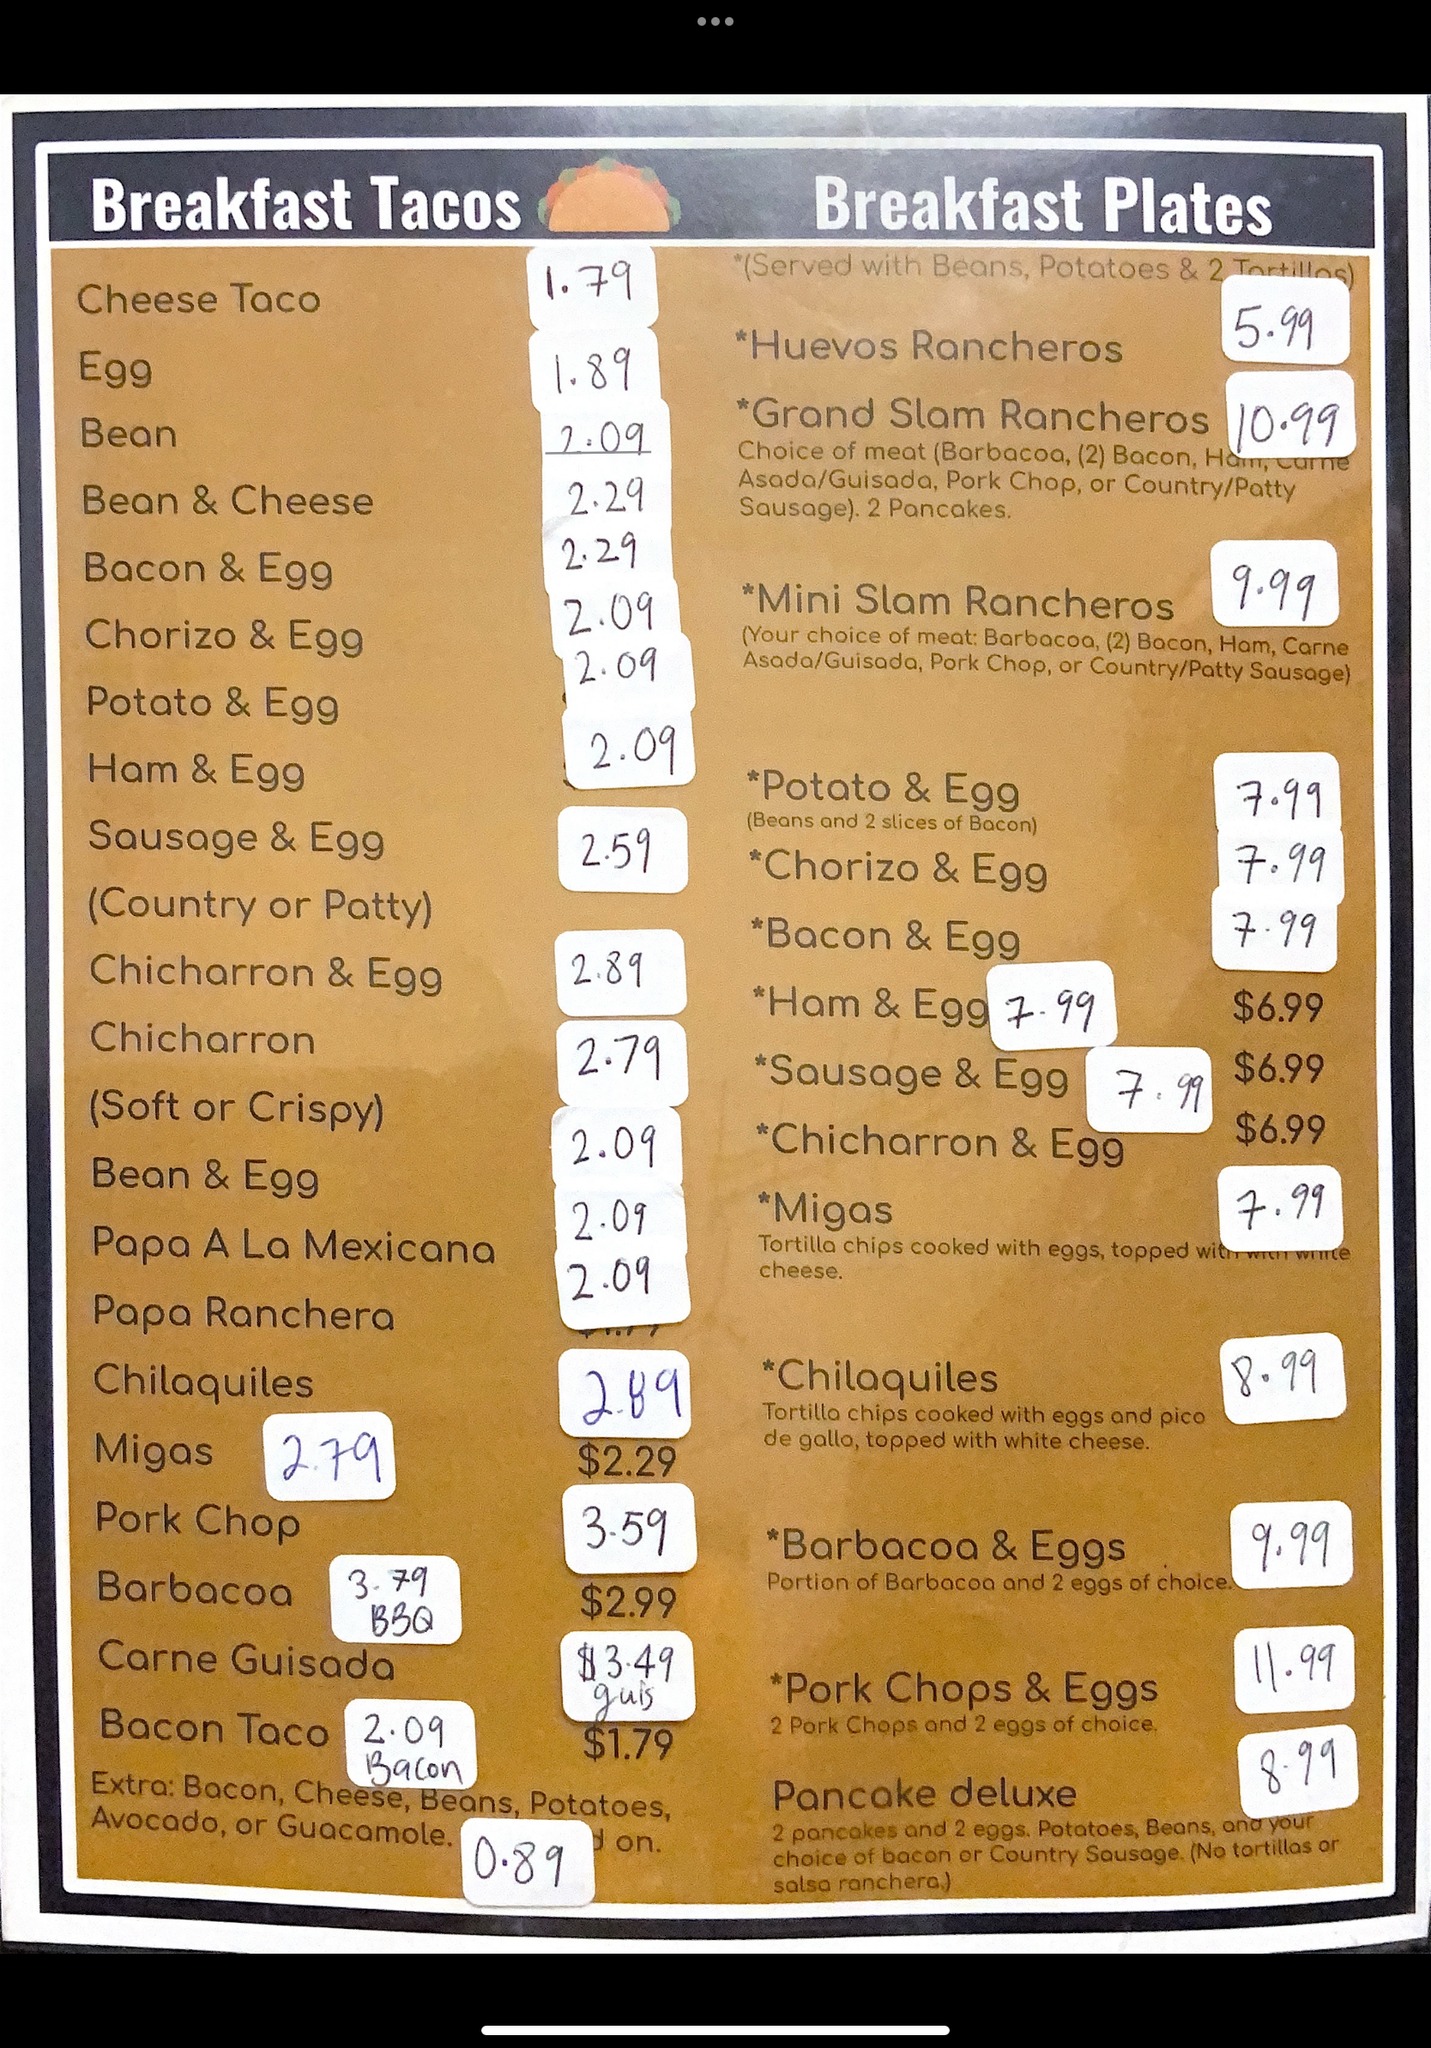 Breakfast Tacos
Cheese Taco 1.79
Egg 1.89
Bean 2.09
Bean & Cheese 2.29
Bacon & Egg 2.29
Chorizo & Egg 2.09
Potato & Egg 2.09
Ham & Egg 2.09
Sausage & Egg 2.59
(Country or Patty)
Chicharron & Egg 2.89
Chicharron 2.79
(Soft or Crispy)
Bean & Egg 2.09
Papa A La Mexicana 2.09
Papa Ranchera 2.09
Chilaquiles 2.89
Migas 2.79 $2.29
Pork Chop 3.59
Barbacoa 3.79 $2.99
BBQ
Carne Guisada $3.49
guis
Bacon Taco 2.09 $1.79
Bacon
Extra: Bacon, Cheese, Beans, Potatoes,
Avocado, or Guacamole. on.
0.89
Breakfast Plates
*(Served with Beans, Potatoes & 2 Tortillas)
*Huevos Rancheros 5.99
*Grand Slam Rancheros 10.99
Choice of meat (Barbacoa, (2) Bacon, Ham, Carne
Asada/Guisada, Pork Chop, or Country/Patty
Sausage). 2 Pancakes.
*Mini Slam Rancheros 9.99
(Your choice of meat: Barbacoa, (2) Bacon, Ham, Carne
Asada/Guisada, Pork Chop, or Country/Patty Sausage)
*Potato & Egg 7.99
(Beans and 2 slices of Bacon)
*Chorizo & Egg 7.99
*Bacon & Egg 7.99
*Ham & Egg 7.99 $6.99
*Sausage & Egg 7.99 $6.99
*Chicharron & Egg $6.99
*Migas 7.99
Tortilla chips cooked with eggs, topped with with white
cheese.
*Chilaquiles 8.99
Tortilla chips cooked with eggs and pico
de gallo, topped with white cheese.
*Barbacoa & Eggs 9.99
Portion of Barbacoa and 2 eggs of choice.
*Pork Chops & Eggs 11.99
2 Pork Chops and 2 eggs of choice.
Pancake deluxe 8.99
2 pancakes and 2 eggs. Potatoes, Beans, and your
choice of bacon or Country Sausage. (No tortillas or
salsa ranchera.)